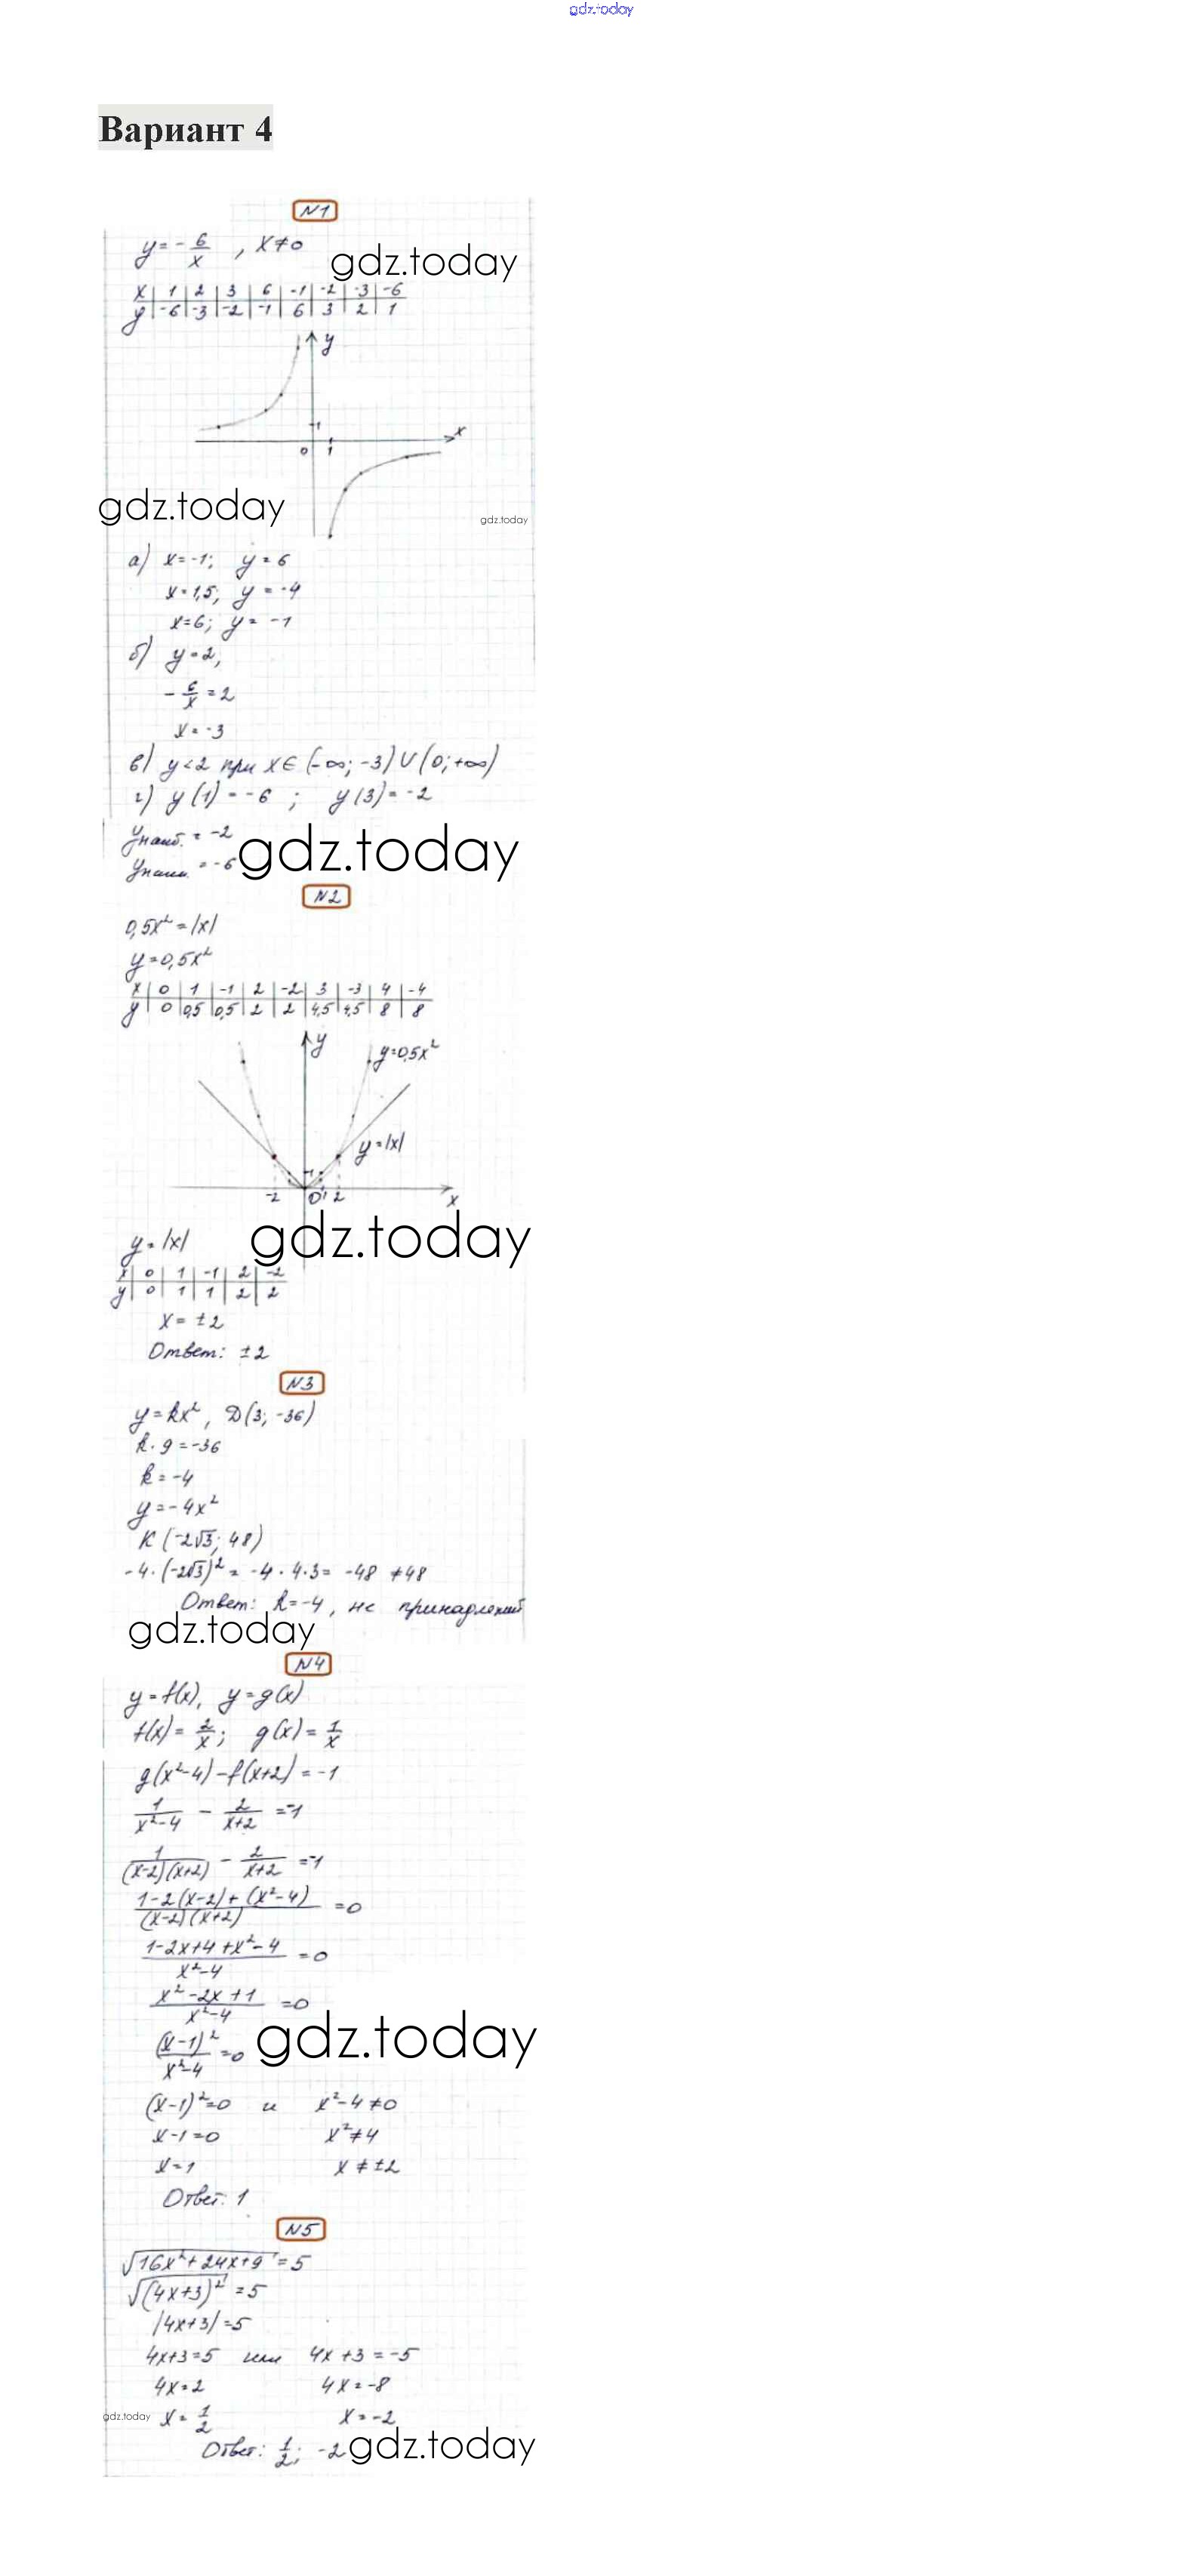 gdz.today
Вариант 4
N1
y = - 6/x , x ≠ 0
gdz.today
x | 1 | 2 | 3 | 6 | -1 | -2 | -3 | -6
y | -6 | -3 | -2 | -1 | 6 | 3 | 2 | 1
y
1
x
0 1
gdz.today
gdz.today
а) x = -1; y = 6
x = 1,5; y = -4
x = 6; y = -1
б) y = 2,
- 6/x = 2
x = -3
в) y < 2 при x ∈ (-∞; -3) ∪ (0; +∞)
г) y(1) = -6 ; y(3) = -2
yнаиб. = -2
yнаим. = -6
gdz.today
N2
0,5x² = |x|
y = 0,5x²
x | 0 | 1 | -1 | 2 | -2 | 3 | -3 | 4 | -4
y | 0 | 0,5 | 0,5 | 2 | 2 | 4,5 | 4,5 | 8 | 8
y
y = 0,5x²
y = |x|
1
-2 0 1 2 x
gdz.today
y = |x|
x | 0 | 1 | -1 | 2 | -2
y | 0 | 1 | 1 | 2 | 2
x = ±2
Ответ: ±2
N3
y = kx², D(3; -36)
k · 9 = -36
k = -4
y = -4x²
K (-2√3; 48)
-4 · (-2√3)² = -4 · 4 · 3 = -48 ≠ 48
Ответ: k = -4, не принадлежит
gdz.today
N4
y = f(x), y = g(x)
f(x) = 2/x; g(x) = 1/x
g(x²-4) - f(x+2) = -1
1/(x²-4) - 2/(x+2) = -1
1/((x-2)(x+2)) - 2/(x+2) = -1
(1-2(x-2)+(x²-4))/((x-2)(x+2)) = 0
(1-2x+4+x²-4)/(x²-4) = 0
(x²-2x+1)/(x²-4) = 0
(x-1)²/(x²-4) = 0
gdz.today
(x-1)² = 0 и x²-4 ≠ 0
x-1 = 0 x² ≠ 4
x = 1 x ≠ ±2
Ответ: 1
N5
√(16x²+24x+9) = 5
√((4x+3)²) = 5
|4x+3| = 5
4x+3 = 5 или 4x+3 = -5
4x = 2 4x = -8
gdz.today
x = 1/2 x = -2
Ответ: 1/2; -2
gdz.today